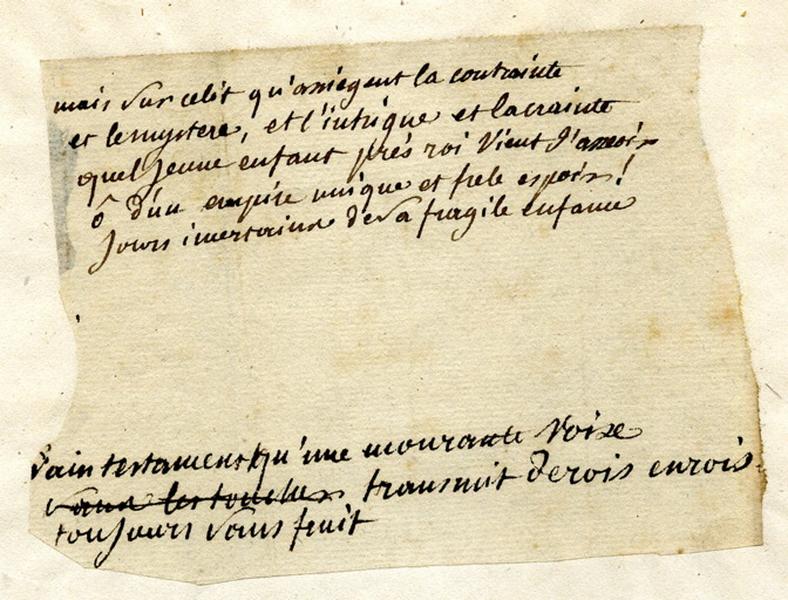 mais sur celit qu'assiegent la contrainte
et lemystere, et l'intrigue et lacrainte
quel jeune enfant prés roi vient d'asseoir
ô d'un empire unique et frele espoir!
jours incertains desa fragile enfance
vain testament qu'une mourante voixe
transmit derois enrois
toujours sans fruit